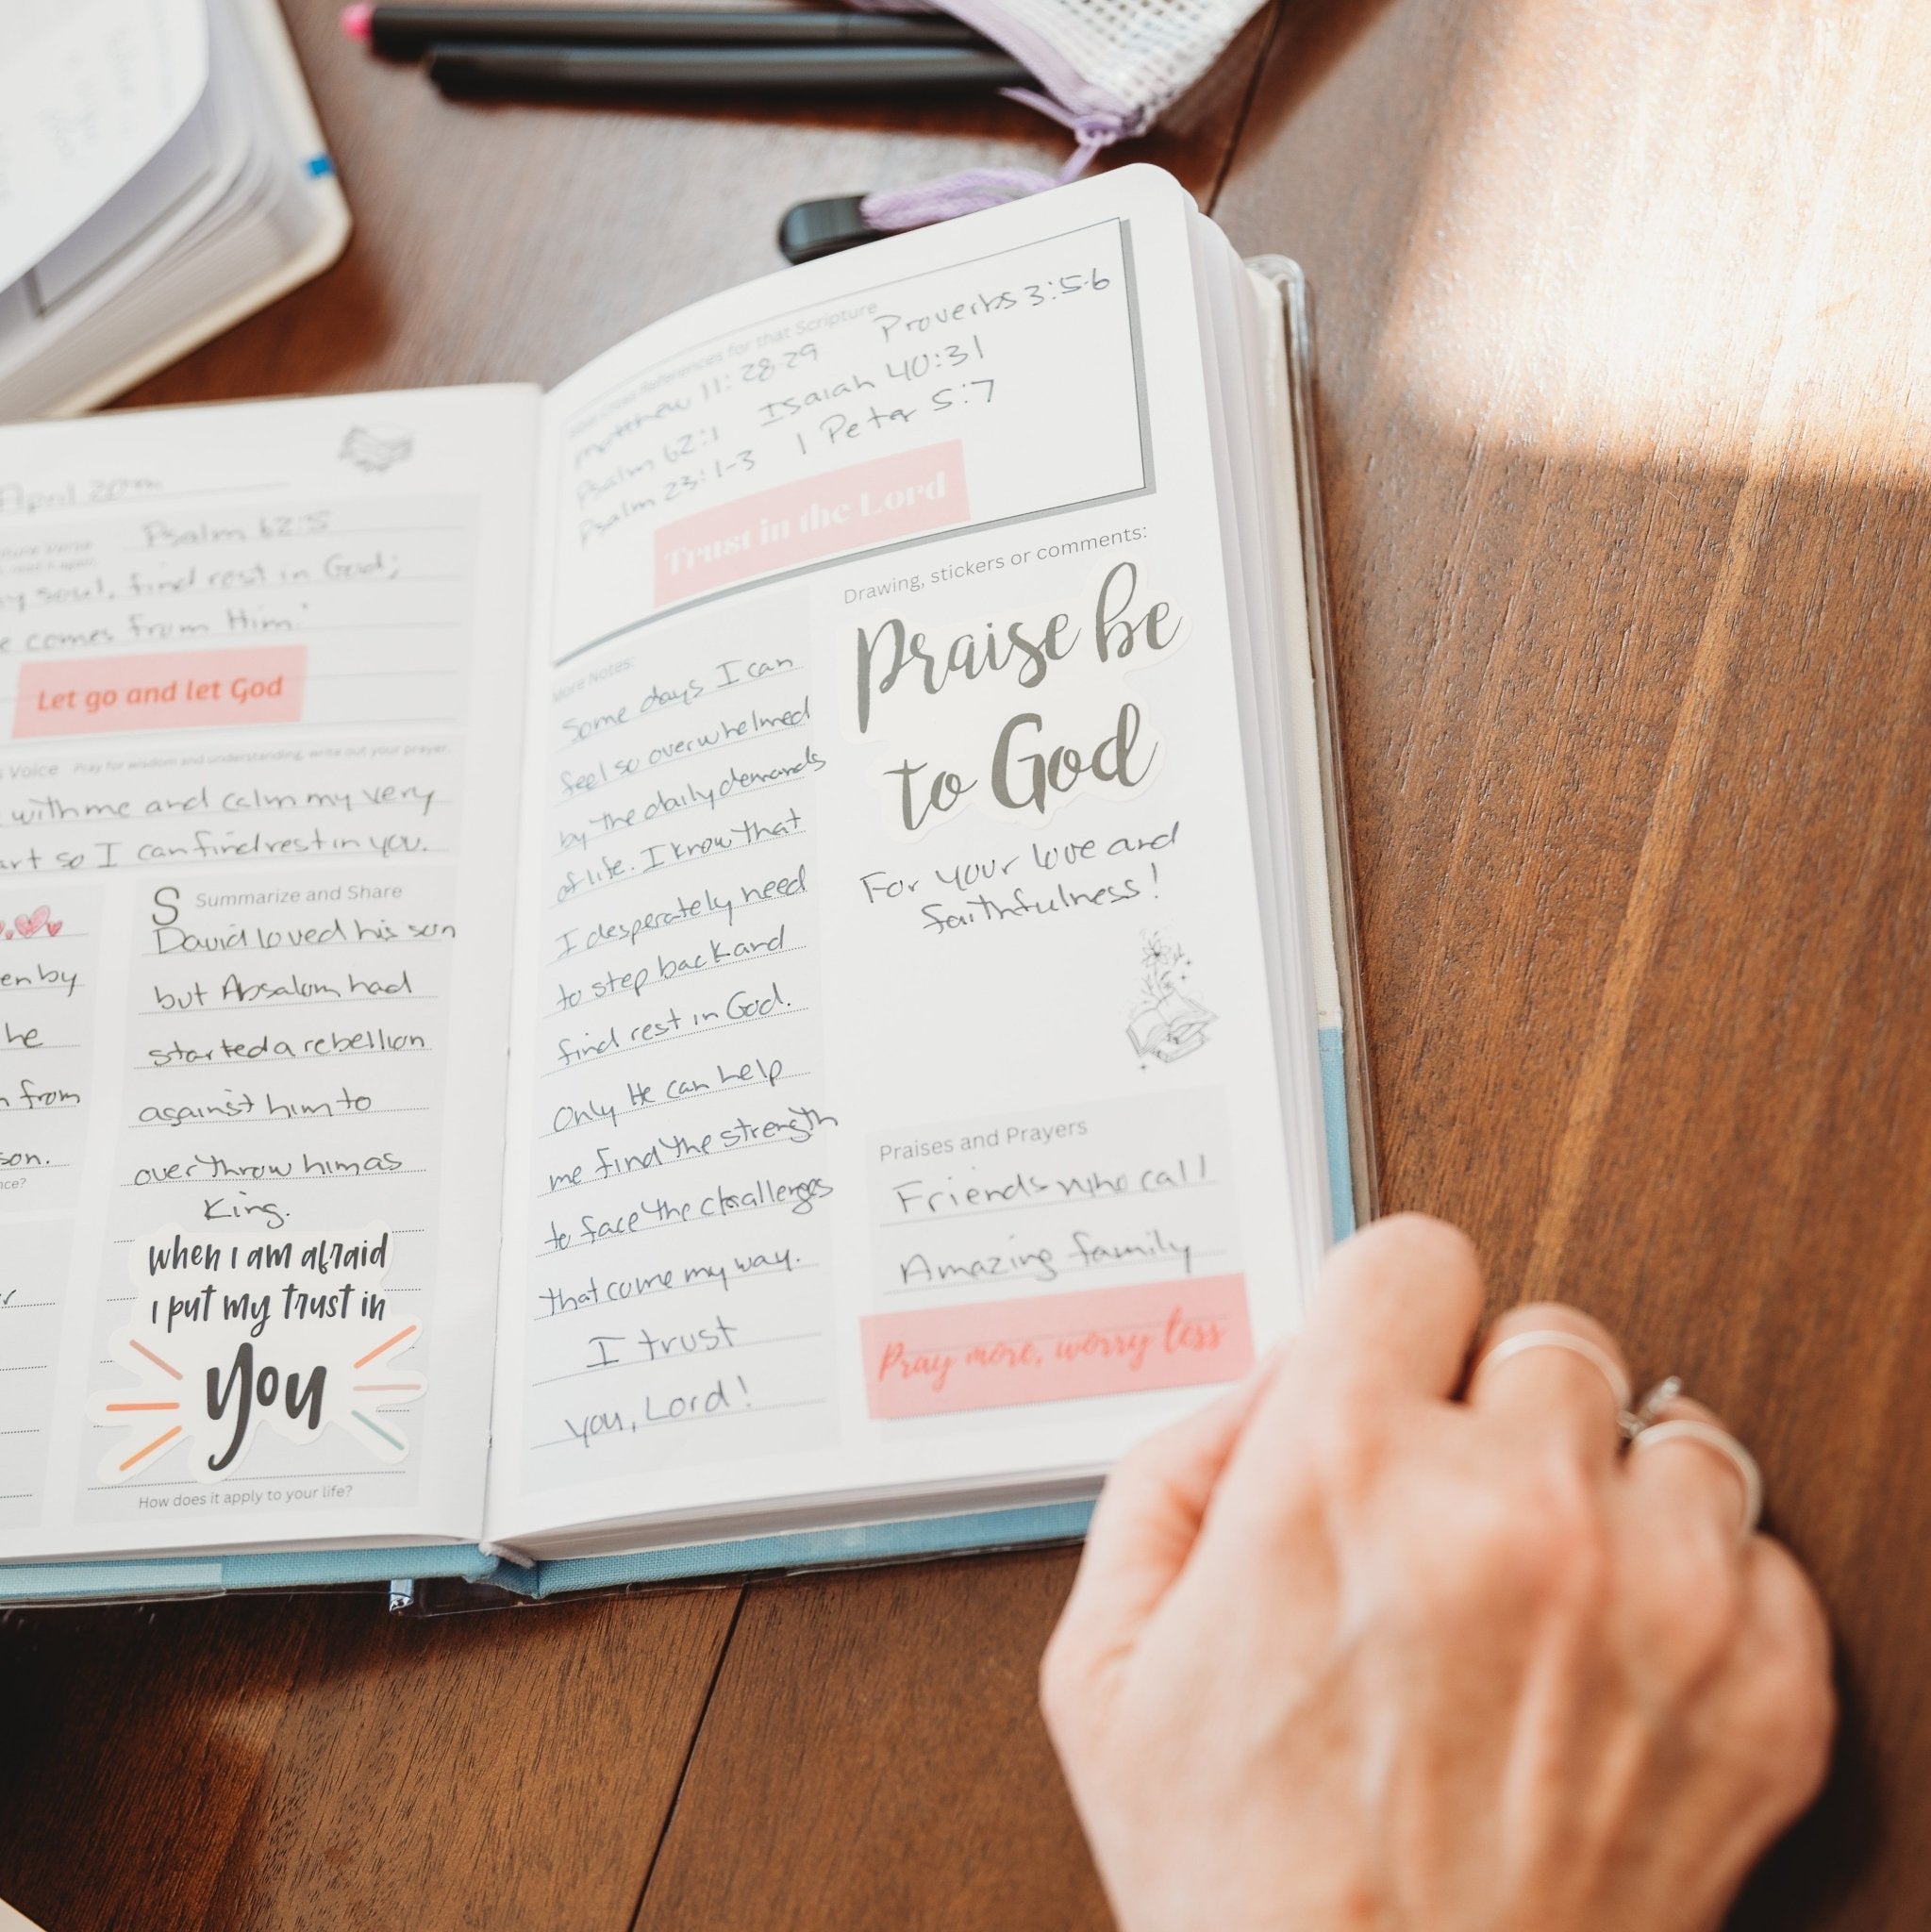 April 20th
Psalm 62:5
soul, find rest in God;
comes from Him."
Let go and let God
Voice Pray for wisdom and understanding, write out your prayer.
with me and calm my very
so I can find rest in you.
S Summarize and Share
David loved his son
but Absalom had
started a rebellion
against him to
overthrow him as
King.
when I am afraid
I put my trust in
you
How does it apply to your life?
by
he
from
References for that Scripture
Matthew 11:28-29 Proverbs 3:5-6
Psalm 62:1 Isaiah 40:31
Psalm 23:1-3 1 Peter 5:7
Trust in the Lord
More Notes:
Some days I can
feel so overwhelmed
by the daily demands
of life. I know that
I desperately need
to step back and
find rest in God.
Only He can help
me find the strength
to face the challenges
that come my way.
I trust
you, Lord!
Drawing, stickers or comments:
Praise be
to God
For your love and
faithfulness!
Praises and Prayers
Friends who call
Amazing family
Pray more, worry less